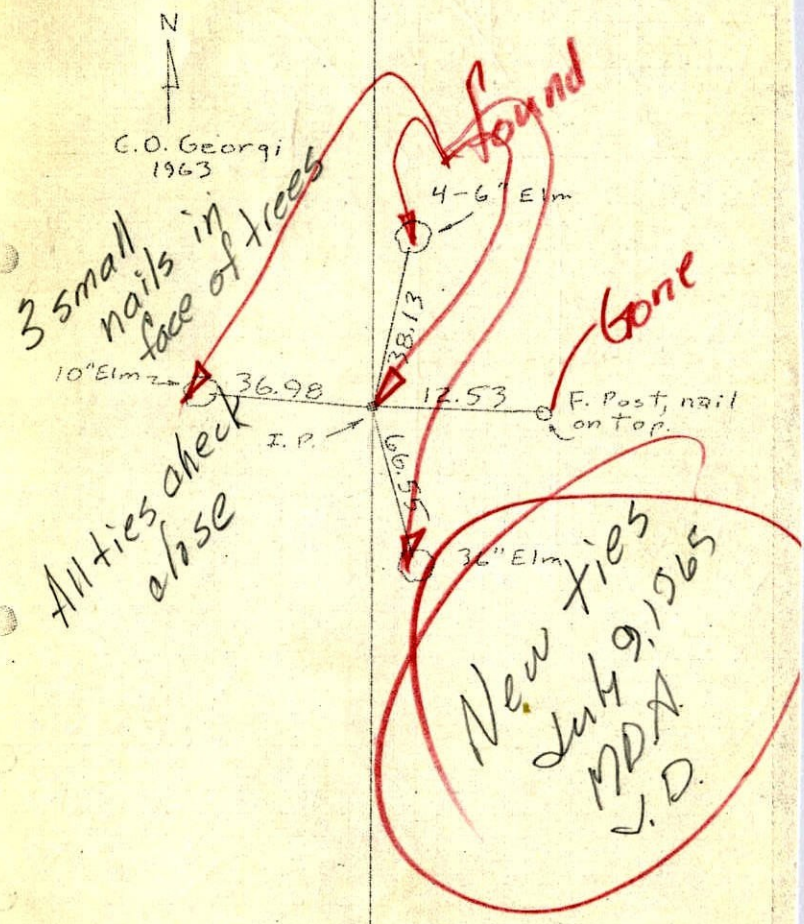 N
C.O. Georgi
1963
found
4-6" Elm
3 small
nails in
face of trees
38.13
Gone
10" Elm
36.98
12.53
F. Post, nail
on top.
I.P.
66.55
All ties check
close
36" Elm
New ties
July 9, 1965
MDA
J.D.